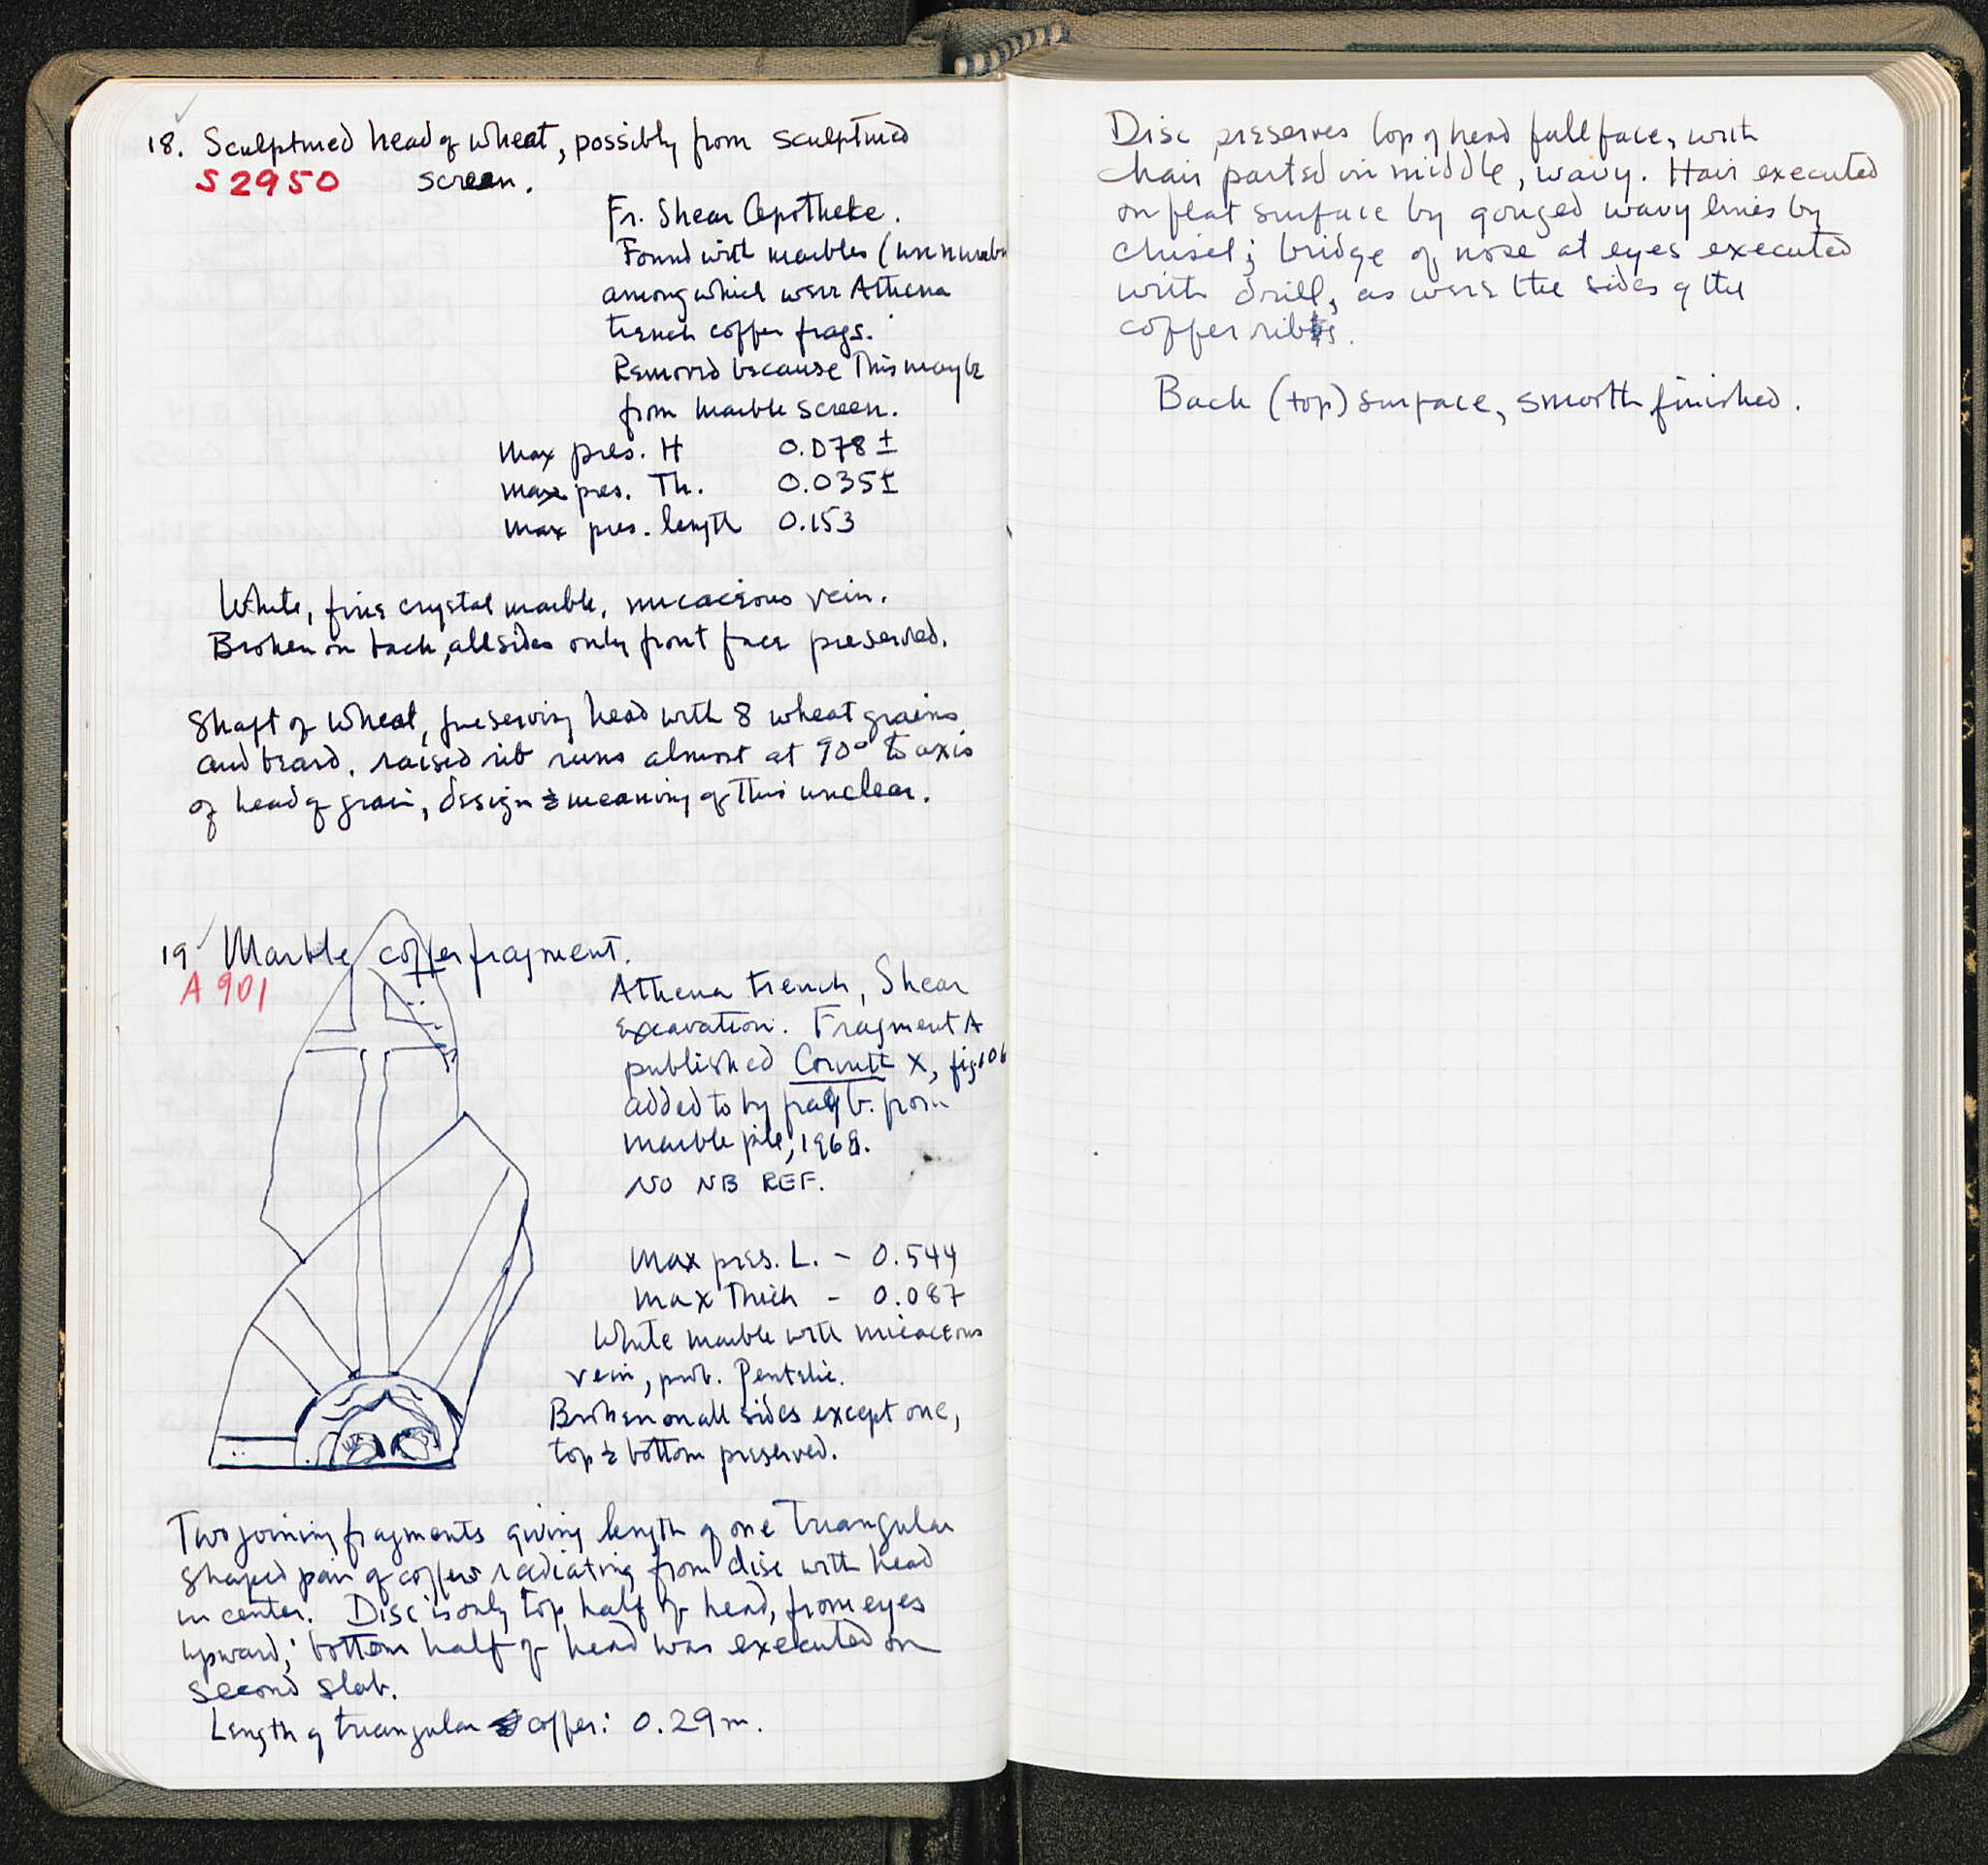 18. Sculptured head of wheat, possibly from sculptured
S 2950 screen.
Fr. Shear Apotheke.
Found with marbles (unnumb
among which were Athena
trench coffer frags.
Removed because this may be
from marble screen.
Max pres. H 0.078 ±
max pres. Th. 0.035 ±
max pres. length 0.153
White, fine crystal marble, micaceous vein.
Broken on back, all sides only front face preserved.
Shaft of wheat, preserving head with 8 wheat grains
and beard. raised rib runs almost at 90° to axis
of head of grain, design & meaning of this unclear.
19 Marble coffer fragment.
A 901
Athena trench, Shear
excavation. Fragment A
published Corinth X, fig. 106
added to by frag b. from
marble pile, 1968.
NO NB REF.
Max pres. L. - 0.544
max Thick - 0.087
White marble with micaceous
vein, prob. Pentelic.
Broken on all sides except one,
top & bottom preserved.
Two joining fragments giving length of one triangular
shaped pair of coffers radiating from disc with head
in center. Disc is only top half of head, from eyes
upward; bottom half of head was executed on
second slab.
Length of triangular coffer: 0.29 m.
Disc preserves top of head full face, with
hair parted in middle, wavy. Hair executed
on flat surface by gouged wavy lines by
chisel; bridge of nose at eyes executed
with drill, as were the sides of the
coffer ribs.
Back (top) surface, smooth finished.